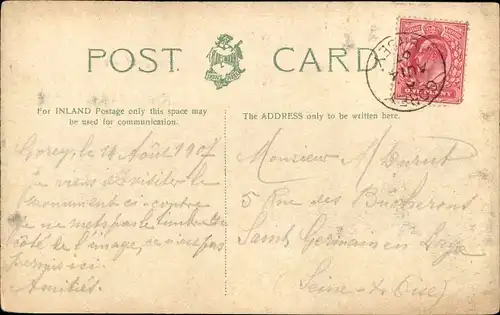 POST CARD
For INLAND Postage only this space may
be used for communication.
The ADDRESS only to be written here.
Gorey, le 14 Août 1907
Je viens de visiter le
monument ci-contre
Je ne mets pas le timbre du
côté de l'image, ce n'est pas
permis ici.
Amitiés.
Monsieur M Durut
5 Rue des Bûcherons
Saint Germain en Laye
(Seine & Oise)
ONE PENNY